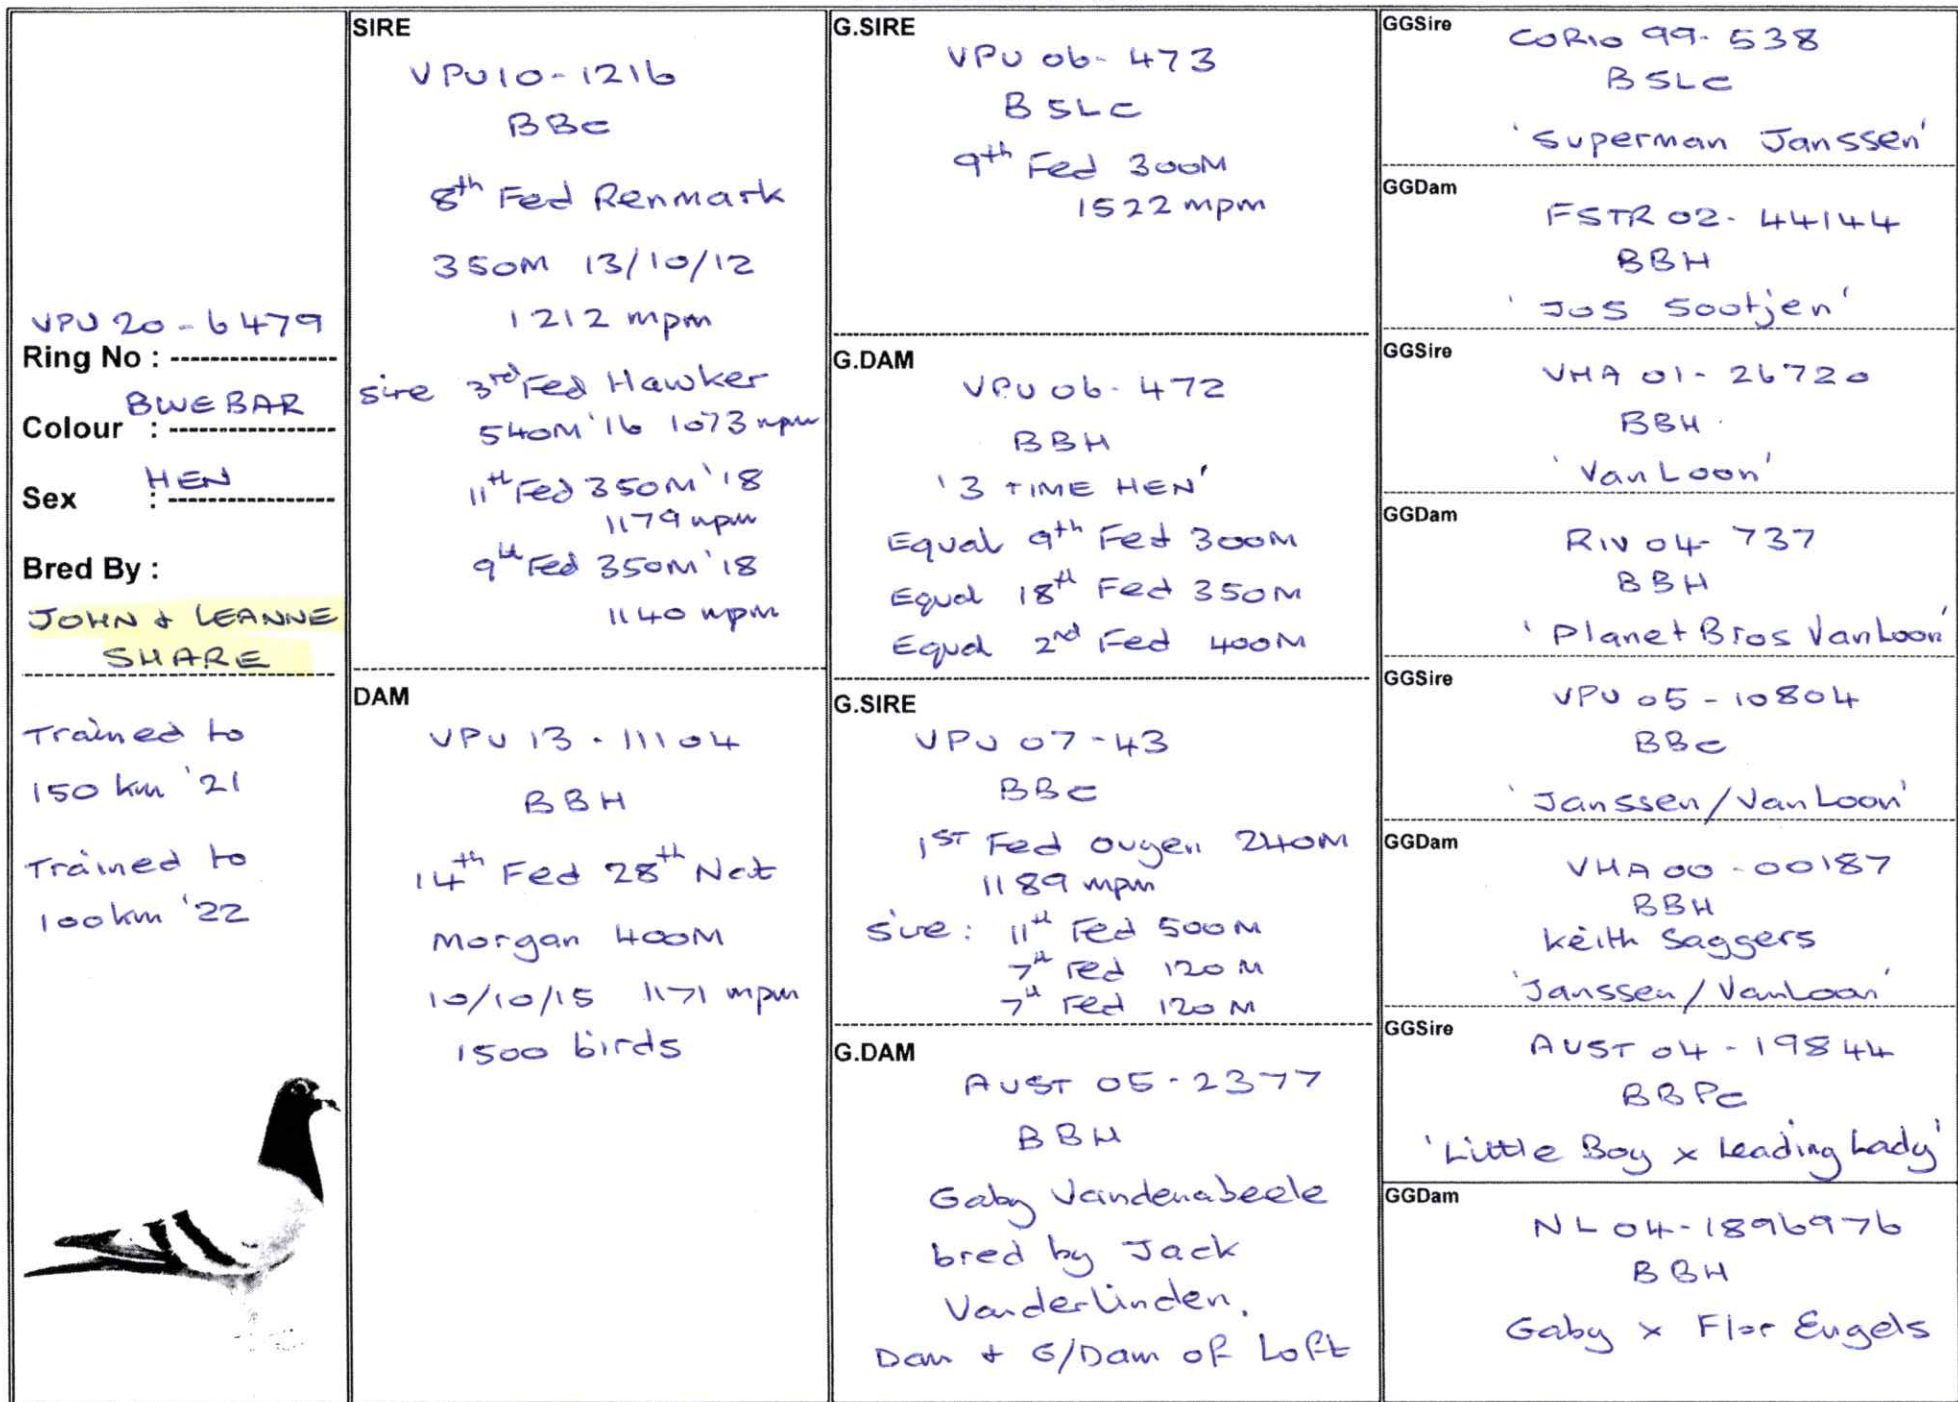 VPU 20-6479
Ring No : ----------------
BLUE BAR
Colour : ----------------
HEN
Sex : ----------------
Bred By :
JOHN + LEANNE
SHARE
Trained to
150 km '21
Trained to
100km '22
SIRE
VPU10-1216
BBC
8th Fed Renmark
350M 13/10/12
1212 mpm
sire 3rd Fed Hawker
540M '16 1073 mpm
11th Fed 350M '18
1179 mpm
9th Fed 350M '18
1140 mpm
DAM
VPU 13-11104
BBH
14th Fed 28th Nat
Morgan 400M
10/10/15 1171 mpm
1500 birds
G.SIRE
VPU 06-473
BSLC
9th Fed 300M
1522 mpm
G.DAM
VPU 06-472
BBH
'3 TIME HEN'
Equal 9th Fed 300M
Equal 18th Fed 350M
Equal 2nd Fed 400M
G.SIRE
VPU 07-43
BBC
1ST Fed Ouyen 240M
1189 mpm
Sire: 11th Fed 500M
7th Fed 120M
7th Fed 120M
G.DAM
AUST 05-2377
BBH
Gaby Vandenabeele
bred by Jack
Vanderlinden.
Dam + G/Dam of Loft
GGSire
CORIO 99-538
BSLC
'Superman Janssen'
GGDam
FSTR 02-44144
BBH
'JOS Sootjen'
GGSire
VHA 01-26720
BBH
'Van Loon'
GGDam
RIV 04-737
BBH
'Planet Bros Van Loon'
GGSire
VPU 05-10804
BBC
'Janssen/Van Loon'
GGDam
VHA 00-00187
BBH
Keith Saggers
'Janssen/Van Loon'
GGSire
AUST 04-19844
BBPC
'Little Boy x Leading Lady'
GGDam
NL 04-1896976
BBH
Gaby x Flor Engels